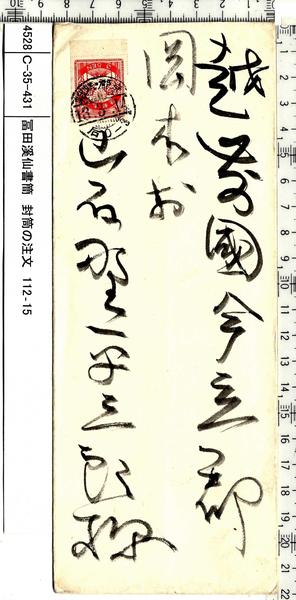 越前國今立郡
岡本村
岩野平三郎様
4528 C-35-431 冨田溪仙書簡 封筒の注文 112-15